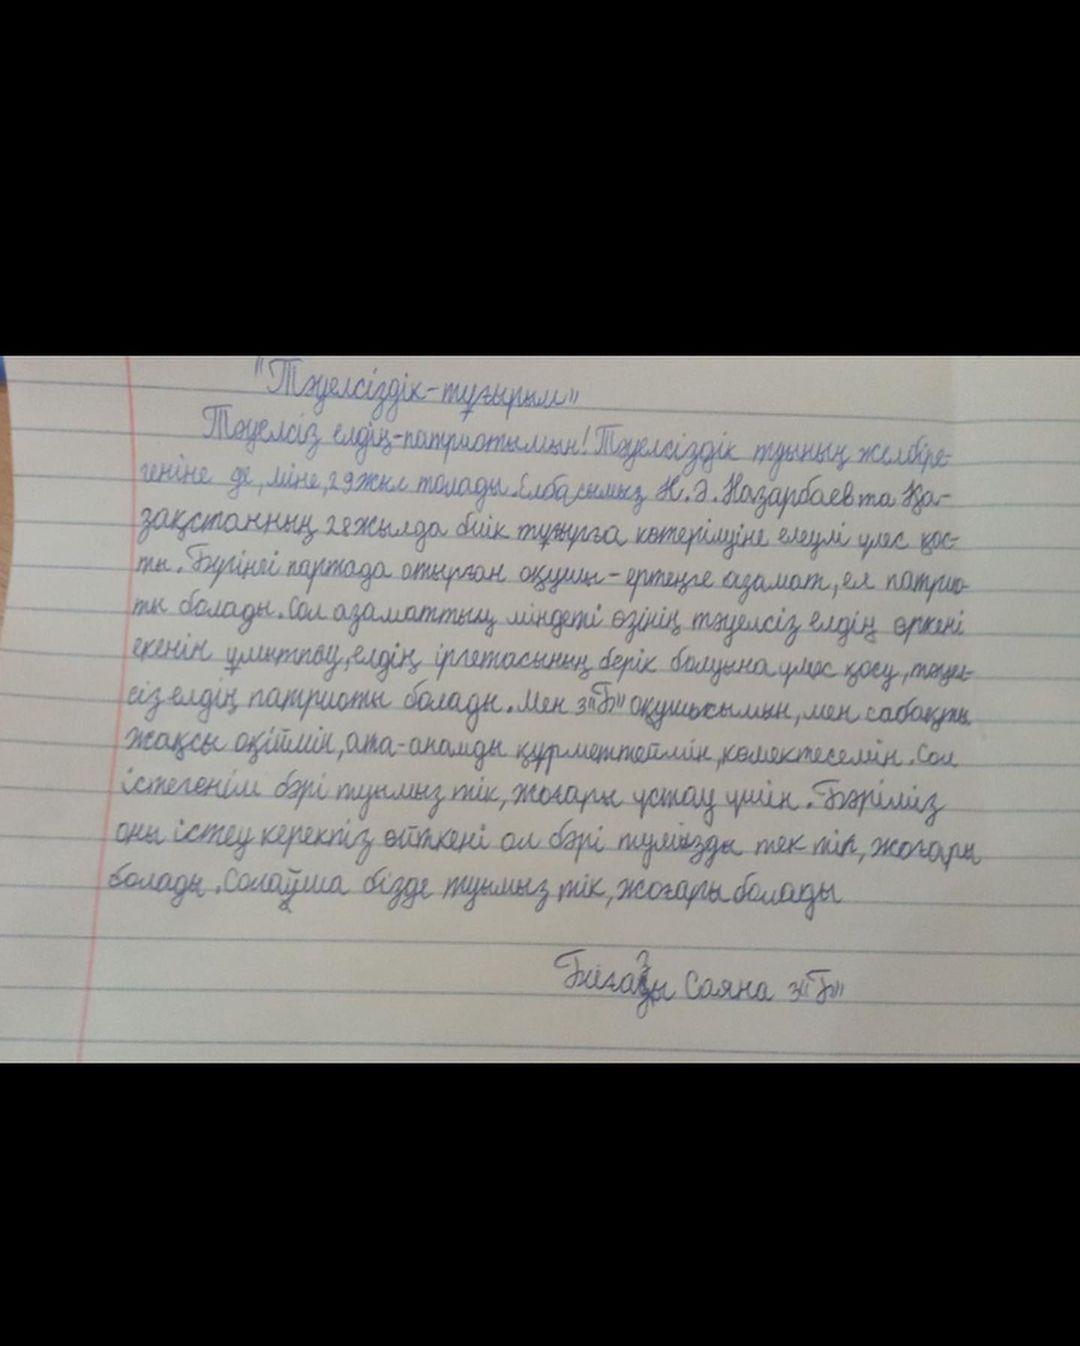 "Тәуелсіздік-тұғырым"
Тәуелсіз елдің-патриотымын! Тәуелсіздік туының желбіре-
геніне де, міне, 29жыл толады. Елбасымыз Н.Ә.Назарбаев та Қа-
зақстанның 28жылда биік тұғырға көтерілуіне елеулі үлес қос-
ты. Бүгінгі партада отырған оқушы-ертеңге азамат, ел патрио-
ты болады. Сол азаматтың міндеті өзінің тәуелсіз елдің өркені
екенін ұмытпау, елдің іргетасының берік болуына үлес қосу, тәуел-
сіз елдің патриоты болады. Мен 3"Б" оқушысымын, мен сабақты
жақсы оқіймін, ата-анамды құрметтеймін, көмектесемін. Сол
істегенім бәрі туымыз тік, жоғары ұстау үшін. Бәріміз
оны істеу керекпіз өйткені ол бәрі туымызды тек тік, жоғары
болады. Солаұша бізде туымыз тік, жоғары болады
Биғазы Саяна 3"Б"